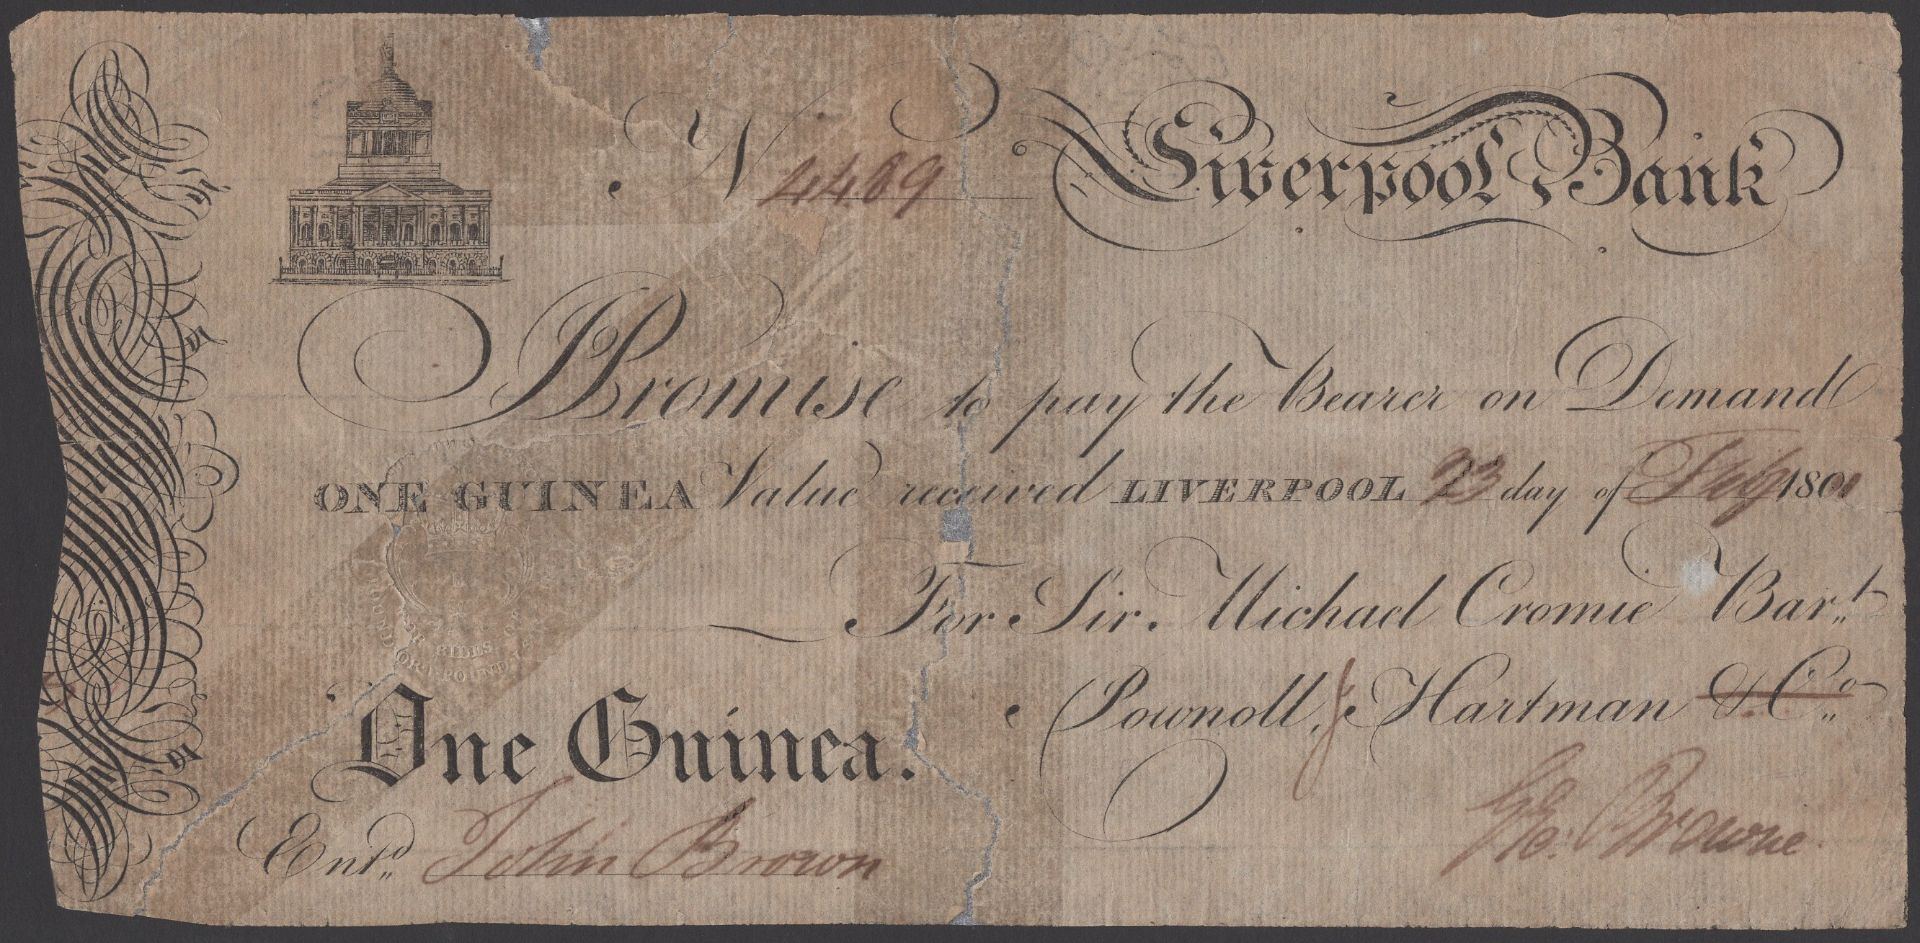 No 4489 Liverpool Bank
I Promise to pay the Bearer on Demand
ONE GUINEA Value received LIVERPOOL 23 day of Feby 1801
For Sir. Michael Cromie Bart.
Pownoll, & Hartman & Co.
One Guinea.
Geo: Browne
Entd. John Brown